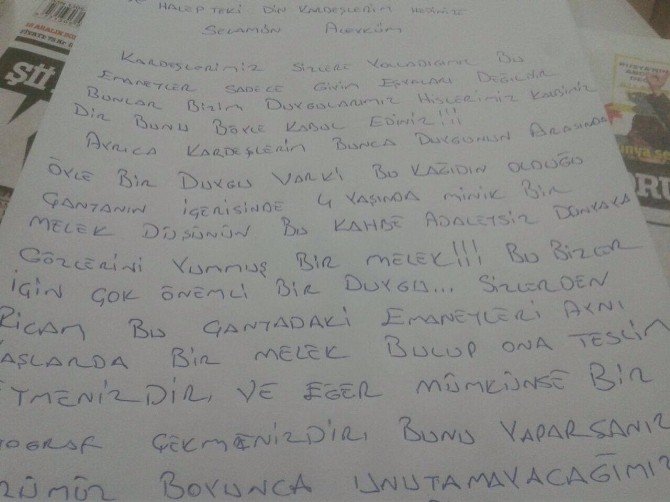 HALEPTEKİ DİN KARDEŞLERİM HEPİNİZE
SELAMÜN ALEYKÜM
KARDEŞLERİMİZ SİZLERE YOLLADIĞIMIZ BU
EMANETLER SADECE GİYİM EŞYALARI DEĞİLDİR
BUNLAR BİZİM DUYGULARIMIZ HİSLERİMİZ KALBİMİZ
DİR BUNU BÖYLE KABUL EDİNİZ!!!
AYRICA KARDEŞLERİM BUNCA DUYGUNUN ARASINDA
ÖYLE BİR DUYGU VARKİ BU KAĞIDIN OLDUĞU
ÇANTANIN İÇERİSİNDE 4 YAŞINDA MİNİK BİR
MELEK DÜŞÜNÜN BU KAHBE ADALETSİZ DÜNYAYA
GÖZLERİNİ YUMMUŞ BİR MELEK!!! BU BİZLER
İÇİN ÇOK ÖNEMLİ BİR DUYGU... SİZLERDEN
RİCAM BU ÇANTADAKİ EMANETLERİ AYNI
YAŞLARDA BİR MELEK BULUP ONA TESLİM
ETMENİZDİR, VE EĞER MÜMKÜNSE BİR
ÇEKMENİZDİR, BUNU YAPARSANIZ
BOYUNCA UNUTAMAYACAĞIMIZ
Şİİ